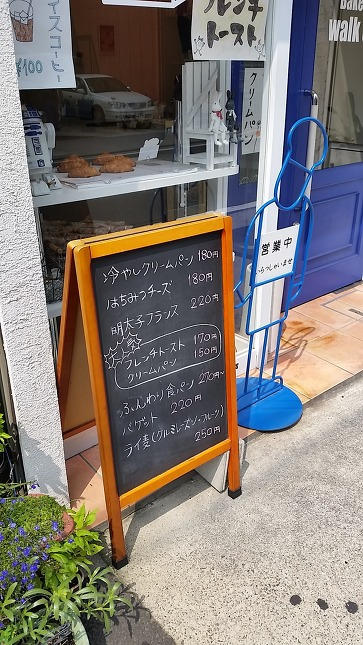 アイスコーヒー
¥100
フレンチ
トースト
クリームパン
Bake
walk
営業中
いらっしゃいませ
冷やしクリームパン 180円
はちみつチーズ 180円
明太子フランス 220円
フレンチトースト 170円
クリームパン 150円
ふんわり食パン 270円〜
バゲット 220円
ライ麦(クルミ・レーズン・フルーツ) 250円